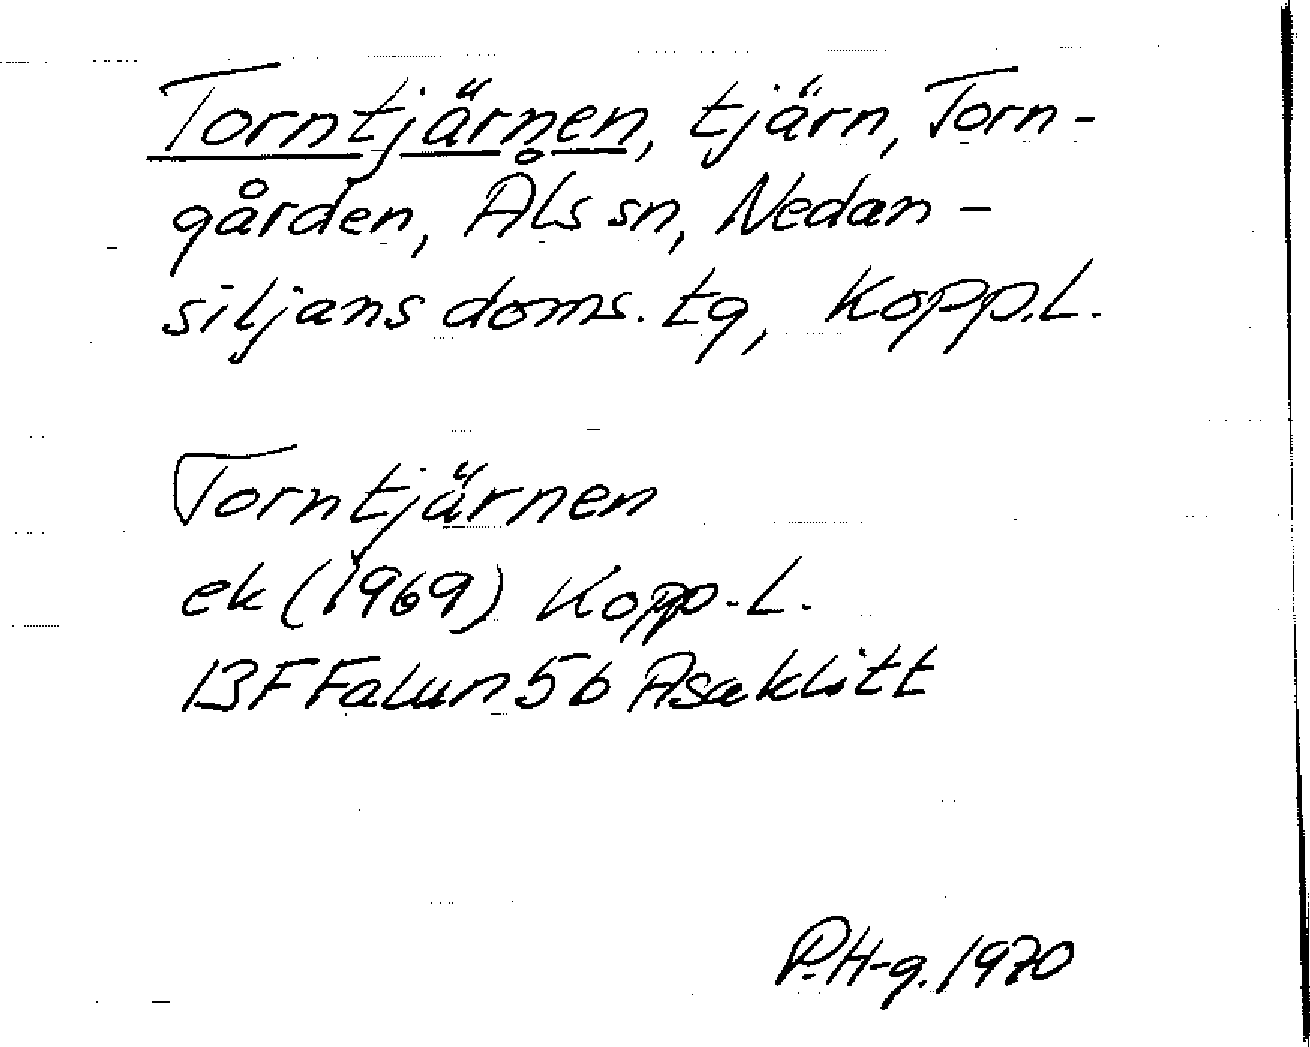 Torntjärnen, tjärn, Torn-
gården, Åls sn, Nedan-
siljans doms. tg, Kopp.L.
Torntjärnen
ek (1969) Kopp.L.
13F Falun 5b Asaklitt
P.H-g. 1970